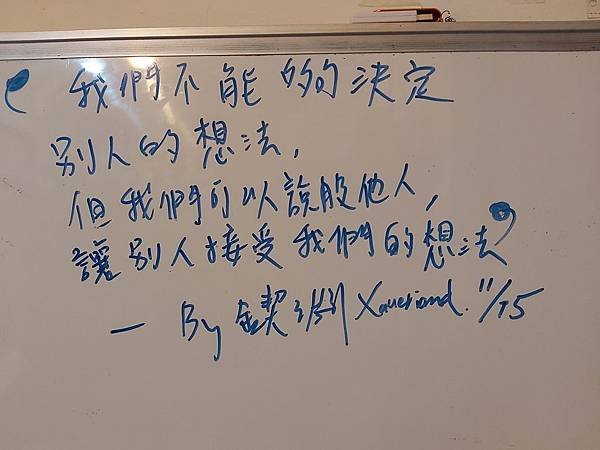 “我們不能夠決定
別人的想法,
但我們可以說服他人,
讓別人接受我們的想法”
— By 11/15